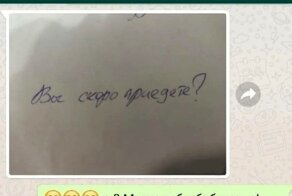 Вы скоро приедете?